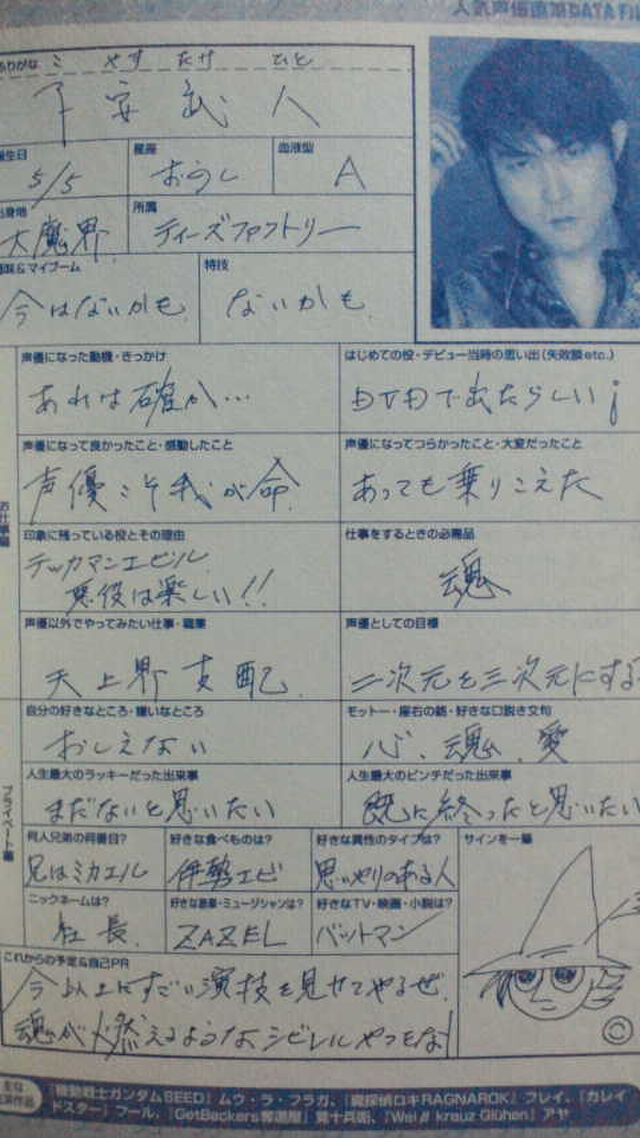 こ やす たけ ひと
子安武人
生日
星座
血液型
5/5
おうし
A
身地
所属
大魔界
ティーズファクトリー
味&マイブーム
特技
今はないかも
ないかも
声優になった動機・きっかけ
はじめての役・デビュー当時の思い出(失敗談etc.)
あれは確か…
DVDで出たらしい
声優になって良かったこと・感動したこと
声優になってつらかったこと・大変だったこと
声優こそ我が命
あっても乗りこえた
印象に残っている役とその理由
仕事をするときの必需品
テッカマンエビル
悪役は楽しい!!
魂
声優以外でやってみたい仕事・職業
声優としての目標
天上界支配
二次元を三次元にする
自分の好きなところ・嫌いなところ
モットー・座右の銘・好きな口説き文句
おしえない
心、魂、愛
人生最大のラッキーだった出来事
人生最大のピンチだった出来事
まだないと思いたい
既に終ったと思いたい
プライベート編
何人兄弟の何番目?
好きな食べものは?
好きな異性のタイプは?
サインを一筆
兄はミカエル
伊勢エビ
思いやりのある人
ニックネームは?
好きな音楽・ミュージシャンは?
好きなTV・映画・小説は?
社長
ZAZEL
バットマン
これからの予定&自己PR
今以上にすごい演技を見せてやるぜ。
魂が燃えるようなシビレルやつをな
©
主な
出演作品
『機動戦士ガンダムSEED』ムウ・ラ・フラガ、『魔探偵ロキRAGNAROK』フレイ、『カレイ
ドスター』フール、『GetBackers奪還屋』筧十兵衛、『Weiß kreuz Glühen』アヤ